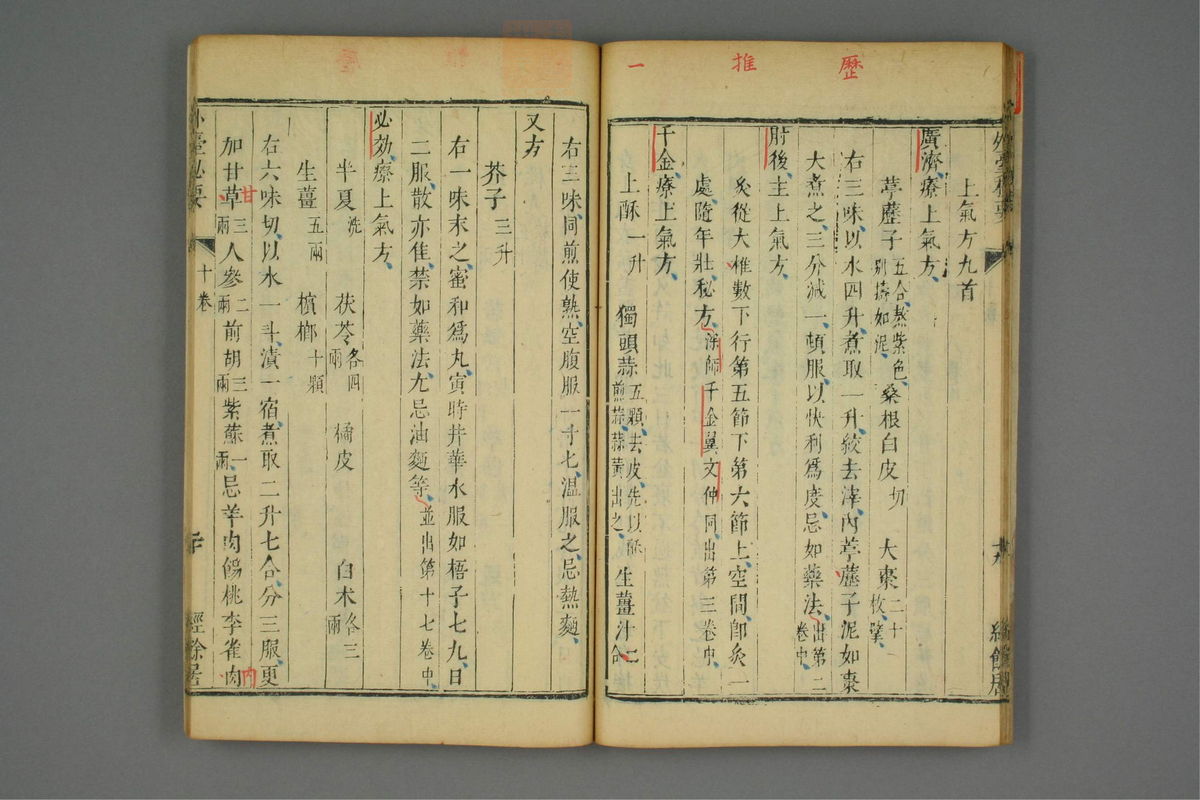 歷
推
一
外臺秘要
上氣方九首
廣濟、療上氣方、
葶藶子五合、熬紫色、別擣如泥、 桑根白皮切 大棗二十枚、擘、
右三味、以水四升、煮取一升、絞去滓、內葶藶子泥如棗
大煮之、三分減一、頓服、以快利爲度、忌如藥法、出第二卷中、
肘後、主上氣方、
灸從大椎數下行第五節下第六節上、空間、卽灸一
處、隨年壯、秘方、深師千金翼文仲同、出第三卷中、
千金、療上氣方、
上酥一升 獨頭蒜五顆去皮、先以酥煎蒜、蒜黃出之、 生薑汁二合
右三味、同煎使熟、空腹服一方寸匕、溫服之、忌熱麵、
又方
芥子三升
右一味末之、蜜和爲丸、寅時井華水服如梧子七丸、日
二服、散亦佳、禁如藥法、尤忌油麵等、並出第十七卷中、
必効、療上氣方、
半夏洗 茯苓各四兩 橘皮 白朮各三兩
生薑五兩 檳榔十顆
右六味切、以水一斗、漬一宿、煮取二升七合、分三服、更
加甘草三兩 人參二兩 前胡三兩 紫蘇一兩、忌羊肉餳桃李雀肉
甘
內
外臺秘要
十卷
二十
經餘居